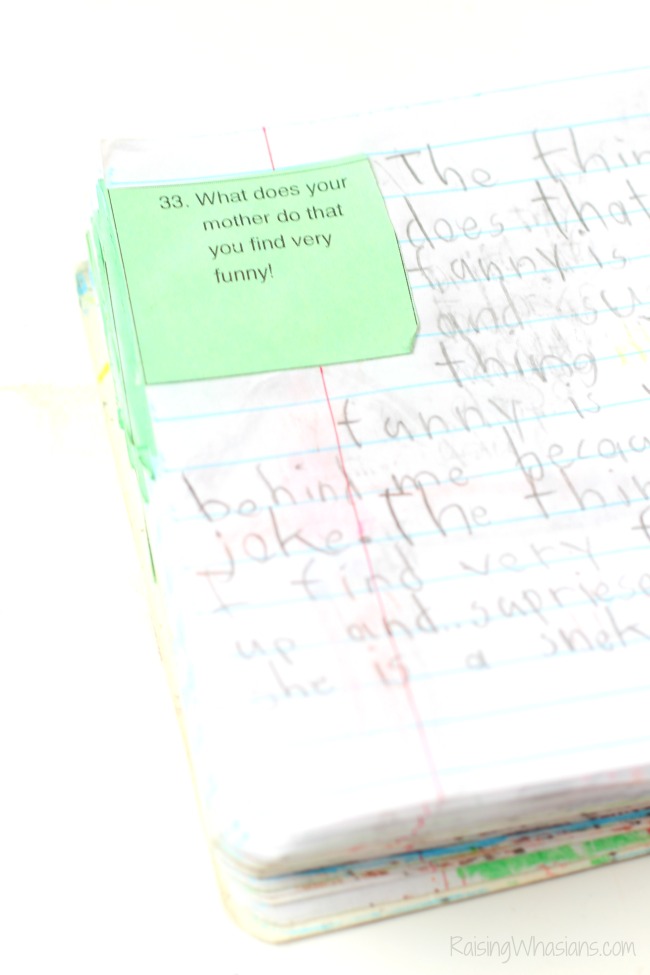 33. What does your
mother do that
you find very
funny!
The thin
does that
fanny is
and su
thing
fanny is
behind me becau
joke. The thin
I find very f
up and suprjese
she is a snek
RaisingWhasians.com